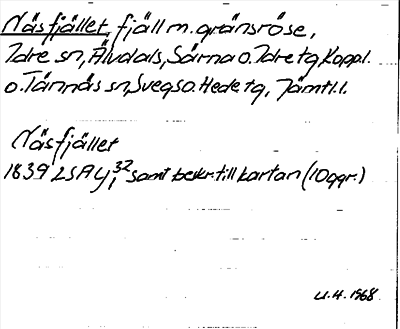 Näsfjället, fjäll m. gränsröse,
Idre sn, Älvdals, Särna o. Idre tg, Koppl.
o. Tännäs sn, Svegs o. Hede tg, Jämtl.l.
Näsfjället
1839 LSA Y 32/1 samt beskr. till kartan (10 ggr.)
U.H. 1968